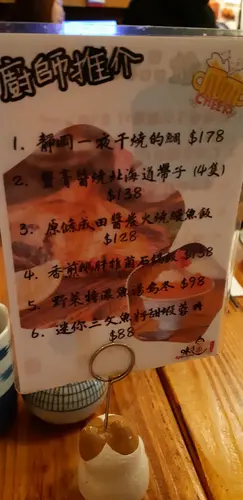 廚師推介
CHEERS
1. 靜岡一夜干燒的鯛 $178
2. 蟹膏醬燒北海道帶子 (4隻)
$138
3. 原條成田醬炭火燒鰻魚飯
$128
4. 香煎鵝肝拌菌石鍋飯 $138
5. 野菜特濃魚湯烏冬 $98
6. 迷你三文魚籽甜蝦蓉丼
$88